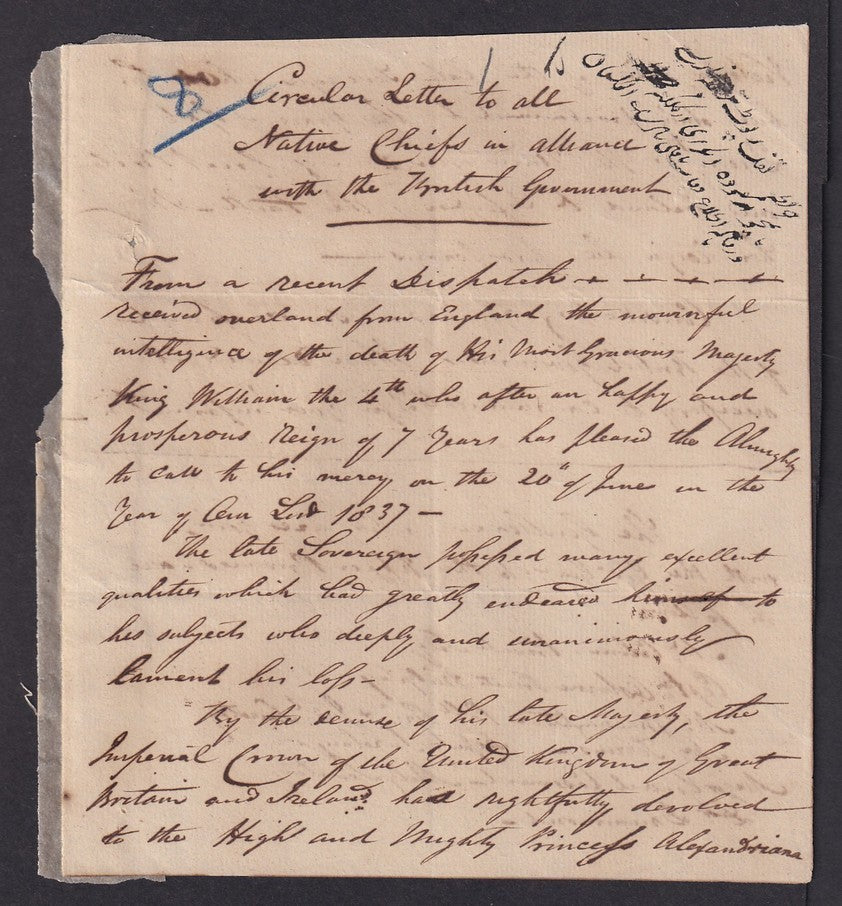 Circular Letter to all
Native Chiefs in alliance
with the British Government
From a recent Dispatch
received overland from England the mournful
intelligence of the death of His Most Gracious Majesty
King William the 4th who after an happy and
prosperous Reign of 7 Years has pleased the Almighty
to call to his mercy on the 20th of June in the
Year of Our Lord 1837 —
The late Sovereign possessed many excellent
qualities which had greatly endeared himself to
his subjects who deeply and unanimously
lament his loss —
By the demise of his late Majesty, the
Imperial Crown of the United Kingdom of Great
Britain and Ireland had rightfully devolved
to the High and Mighty Princess Alexandriana